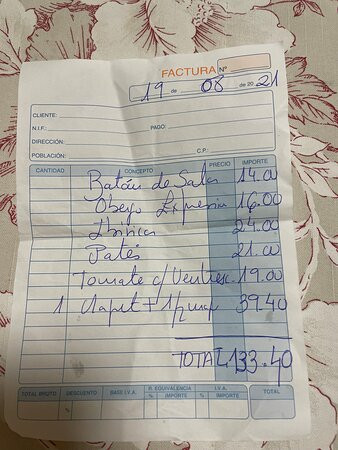 FACTURA Nº
19 de 08 de 2021
CLIENTE:
N.I.F.: PAGO:
DIRECCIÓN:
POBLACIÓN: C.P.:
CANTIDAD CONCEPTO PRECIO IMPORTE
de 14.00
16.00
24.00
Patés 21.00
Tomate c/ Ventresc 19.00
1 + 1/2 39.40
TOTAL 133.40
TOTAL BRUTO DESCUENTO BASE I.V.A. R. EQUIVALENCIA I.V.A. TOTAL
% % IMPORTE % IMPORTE